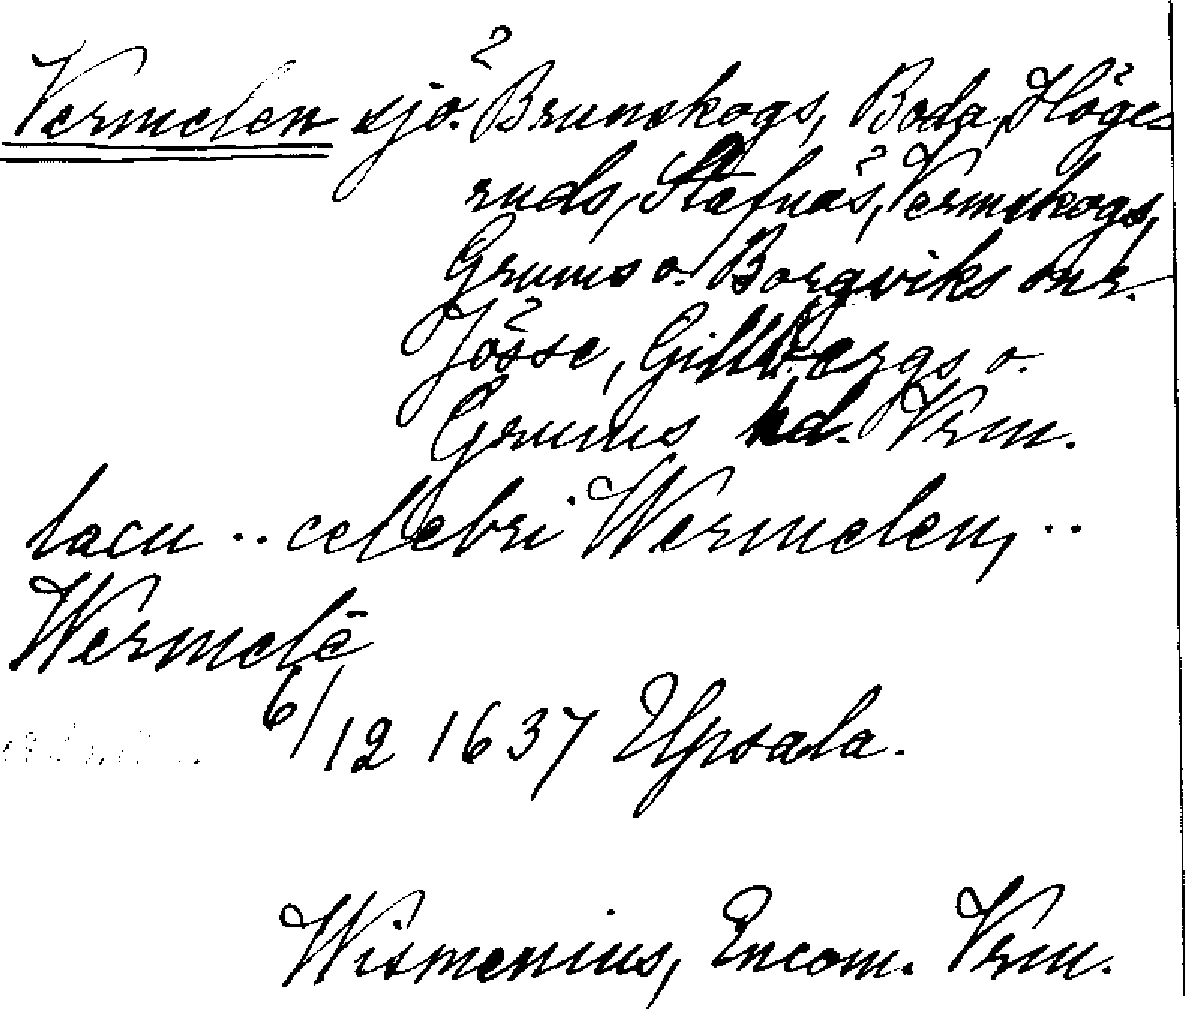 Vermelen sjö. Brunskogs, Boda, Höge-
ruds, Stafnäs, Vermskogs,
Grums o. Borgviks snr.
Jösse, Gillbergs o.
Grums hd. Vrm.
lacu .. celebri Wermelen, ..
Wermelē
6/12 1637 Upsala.
Wismenius, Encom. Vrm.